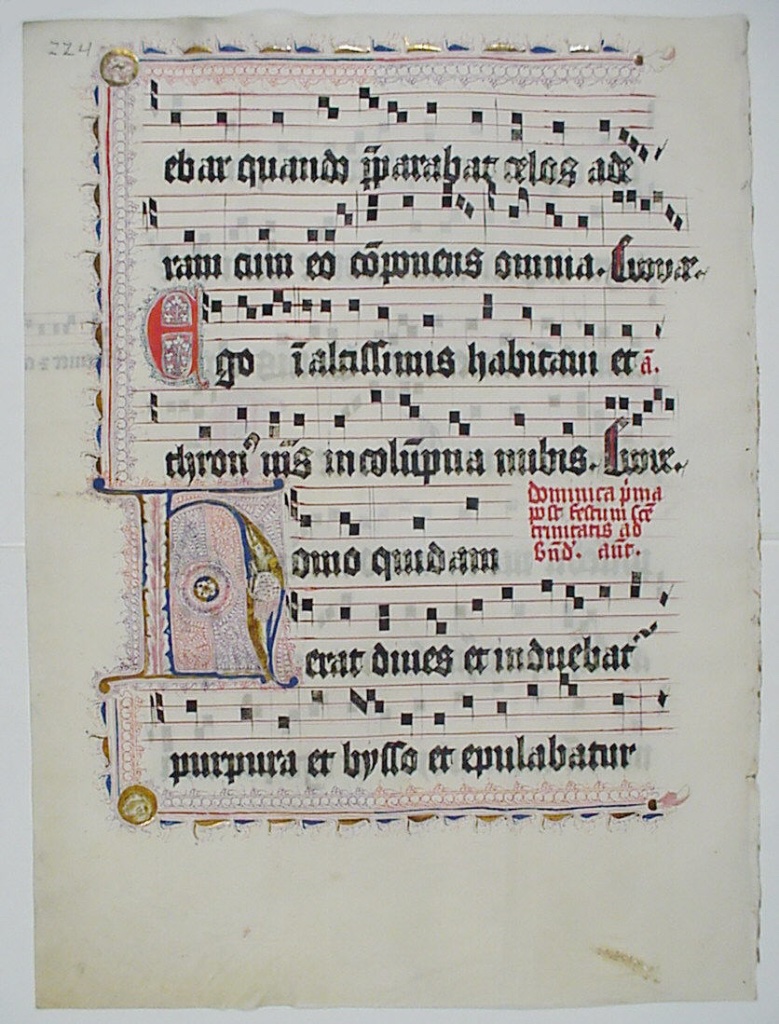 224
ebar quando p̄parabat celos ade
ram cum eo cōponens omnia.
Ego ī altissimis habitaui et ā.
thron᷒ m̄s in colūpna nubis.
dominica p̄ma
post festum scē
trinitatis ad
bn̄d'. ant̄.
Homo quidam
erat diues et induebat
purpura et bysso et epulabatur